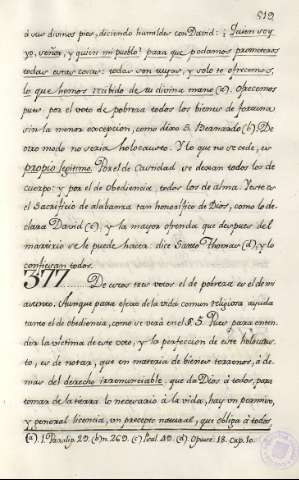 512
á sus divinos pies, diciendo humildes con David: ¿Quien soy
yo, señor, y quien mi pueblo? para que podamos prometeros
todas estas cosas: todas son tuyas, y solo te ofrecemos,
lo que hemos recibido de tu divina mano (a). Ofrecemos
pues, por el voto de pobreza todos los bienes de fortuna
sin la menor excepcion, como dixo S. Bernardo (b). De
otro modo no seria holocausto. Y lo que no se cede, es
propio legitimo. Por el de Castidad se dexan todos los de
cuerpo: y por el de Obediencia, todos los de alma. Y este es
el Sacrificio de alabanza tan honorifico de Dios, como lo de-
clara David (c), y la mayor ofrenda que despues del
martirio se le puede hacer: dice Santo Thomas (d), y lo
confiesan todos.
377..... De estos tres votos el de pobreza es el de mi
asunto. Aunque para efecto de la vida comun religiosa ayuda
tanto el de obediencia, como se verá en el §. 5. Pues para enten-
der la victima de este voto, y la perfeccion de este holocaus-
to, es de notar, que en materia de bienes terrenos, á de-
mas del derecho irrenunciable, que da Dios á todos, para
tomar de la tierra lo necesario á la vida, hay un permiso,
y general licencia, un precepto natural, que obliga á todos
(a). 1. Paralip. 29. (b) n. 269. (c) Psal. 49. (d). Opusc. 18. Cap. 1o.